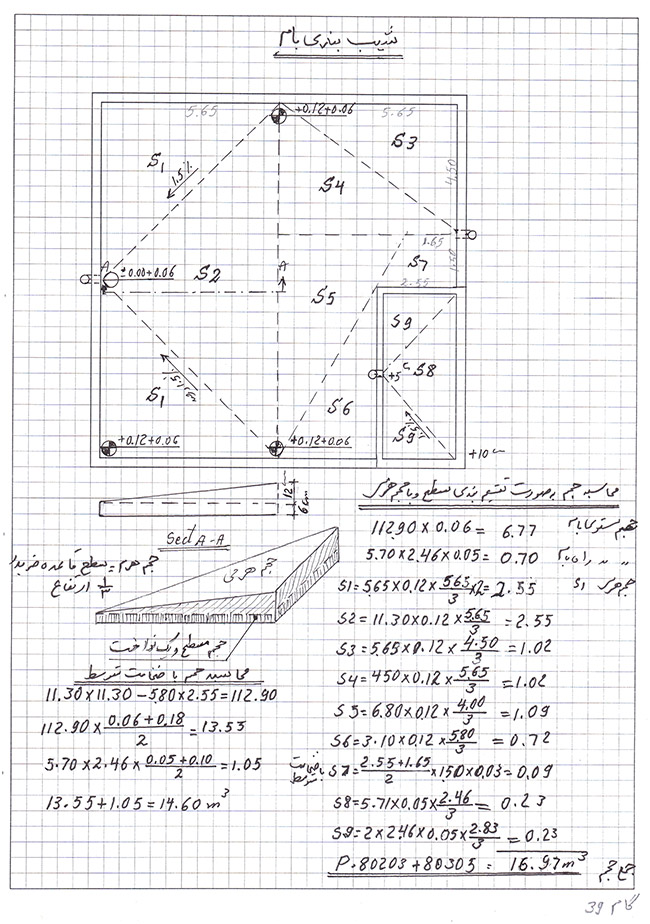 شیب بندی بام
5.65
+0.12+0.06
5.65
S1
1.5%
S3
4.50
S4
1.65
A
±0.00+0.06
S2
A
S7
1.50
2.55
S5
S9
+5
S8
S1
S6
S9
+0.12+0.06
+0.12+0.06
+10
12
6cm
Sect A-A
حجم هرم = سطح قاعده ضربدر
1/3 ارتفاع
حجم هرمی
حجم مسطح و یکنواخت
محاسبه حجم با ضخامت متوسط
11.30×11.30-5.80×2.55=112.90
112.90×(0.06+0.18)/2=13.55
5.70×2.46×(0.05+0.10)/2=1.05
13.55+1.05=14.60 m³
محاسبه حجم بصورت تقسیم بندی سطح و با حجم هرمی
112.90×0.06= 6.77
5.70×2.46×0.05= 0.70
S1=5.65×0.12×5.65/3×2=2.55 S1
S2=11.30×0.12×5.65/3=2.55
S3=5.65×0.12×4.50/3=1.02
S4=450×0.12×5.65/3=1.02
S5=6.80×0.12×4.00/3=1.09
S6=3.10×0.12×5.80/3=0.72
S7=(2.55+1.65)/2×1.50×0.03=0.09 با ضخامت متوسط
S8=5.71×0.05×2.46/3= 0.23
S9=2×2.46×0.05×2.83/3=0.23
P.80203+80305 = 16.97m³ جمع حجم
گام 39